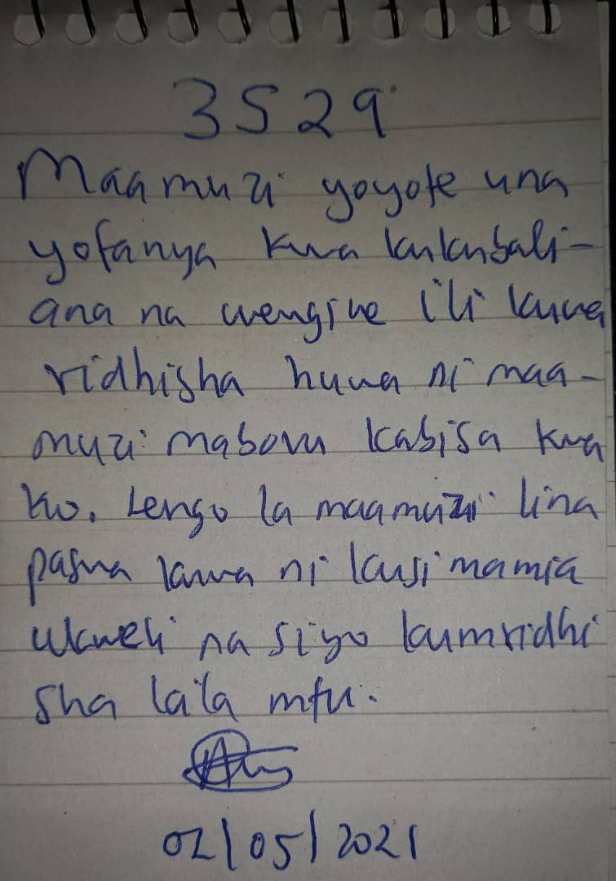 3529
Maamuzi yoyote una
yofanya kwa kukubali-
ana na wengine ili kuwa
ridhisha huwa ni maa-
muzi mabovu kabisa kwa
ko. Lengo la maamuzi lina
paswa kuwa ni kusimamia
ukweli na siyo kumridhi
sha kila mtu.
02/05/2021